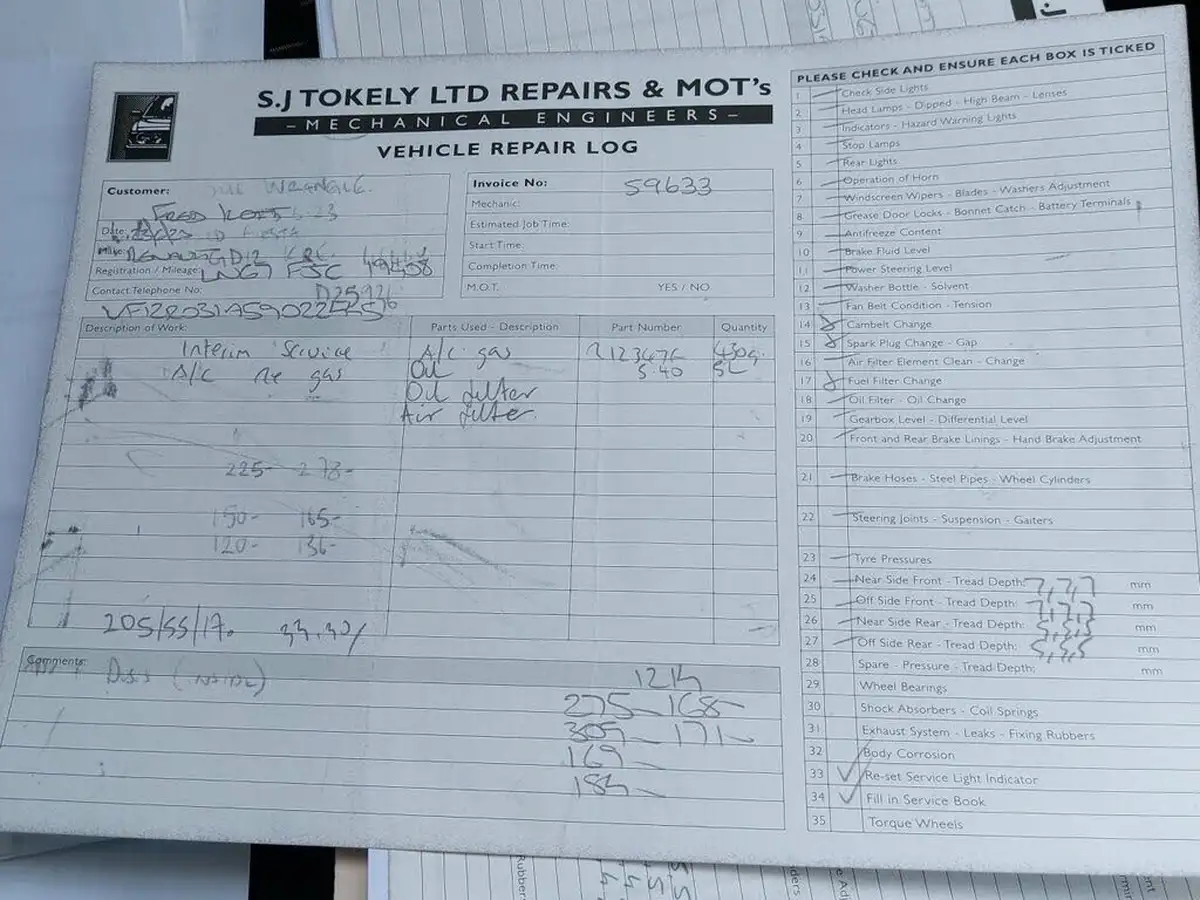 S.J TOKELY LTD REPAIRS & MOT's
– MECHANICAL ENGINEERS –
VEHICLE REPAIR LOG
Customer: WRANGLE.
FRED
Date:
Make:
Registration / Mileage:
Contact Telephone No:
Invoice No: 59633
Mechanic:
Estimated Job Time:
Start Time:
Completion Time:
M.O.T. YES / NO
Description of Work: Parts Used - Description Part Number Quantity
Interim Service A/c gas 430g.
A/C re gas Oil 5.40 5L
Oil filter
Air filter.
225- 278-
150- 165-
120- 136-
205/55/17. 33,30/
Comments:
1214
275- 168-
305- 171-
169-
184-
PLEASE CHECK AND ENSURE EACH BOX IS TICKED
1 Check Side Lights
2 Head Lamps - Dipped - High Beam - Lenses
3 Indicators - Hazard Warning Lights
4 Stop Lamps
5 Rear Lights
6 Operation of Horn
7 Windscreen Wipers - Blades - Washers Adjustment
8 Grease Door Locks - Bonnet Catch - Battery Terminals
9 Antifreeze Content
10 Brake Fluid Level
11 Power Steering Level
12 Washer Bottle - Solvent
13 Fan Belt Condition - Tension
14 Cambelt Change
15 Spark Plug Change - Gap
16 Air Filter Element Clean - Change
17 Fuel Filter Change
18 Oil Filter - Oil Change
19 Gearbox Level - Differential Level
20 Front and Rear Brake Linings - Hand Brake Adjustment
21 Brake Hoses - Steel Pipes - Wheel Cylinders
22 Steering Joints - Suspension - Gaiters
23 Tyre Pressures
24 Near Side Front - Tread Depth: 7,7,7 mm
25 Off Side Front - Tread Depth: 7,7,7 mm
26 Near Side Rear - Tread Depth: 5,5,5 mm
27 Off Side Rear - Tread Depth: 5,5,5 mm
28 Spare - Pressure - Tread Depth: mm
29 Wheel Bearings
30 Shock Absorbers - Coil Springs
31 Exhaust System - Leaks - Fixing Rubbers
32 Body Corrosion
33 Re-set Service Light Indicator
34 Fill in Service Book
35 Torque Wheels